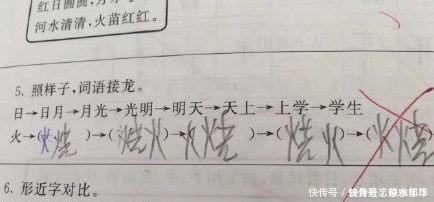 红日圆圆,月
河水清清,火苗红红。
5. 照样子,词语接龙。
日→日月→月光→光明→明天→天上→上学→学生
火→(火烧)→(烧火)→(火烧)→(烧火)→(火烧
6. 形近字对比。
快传号/